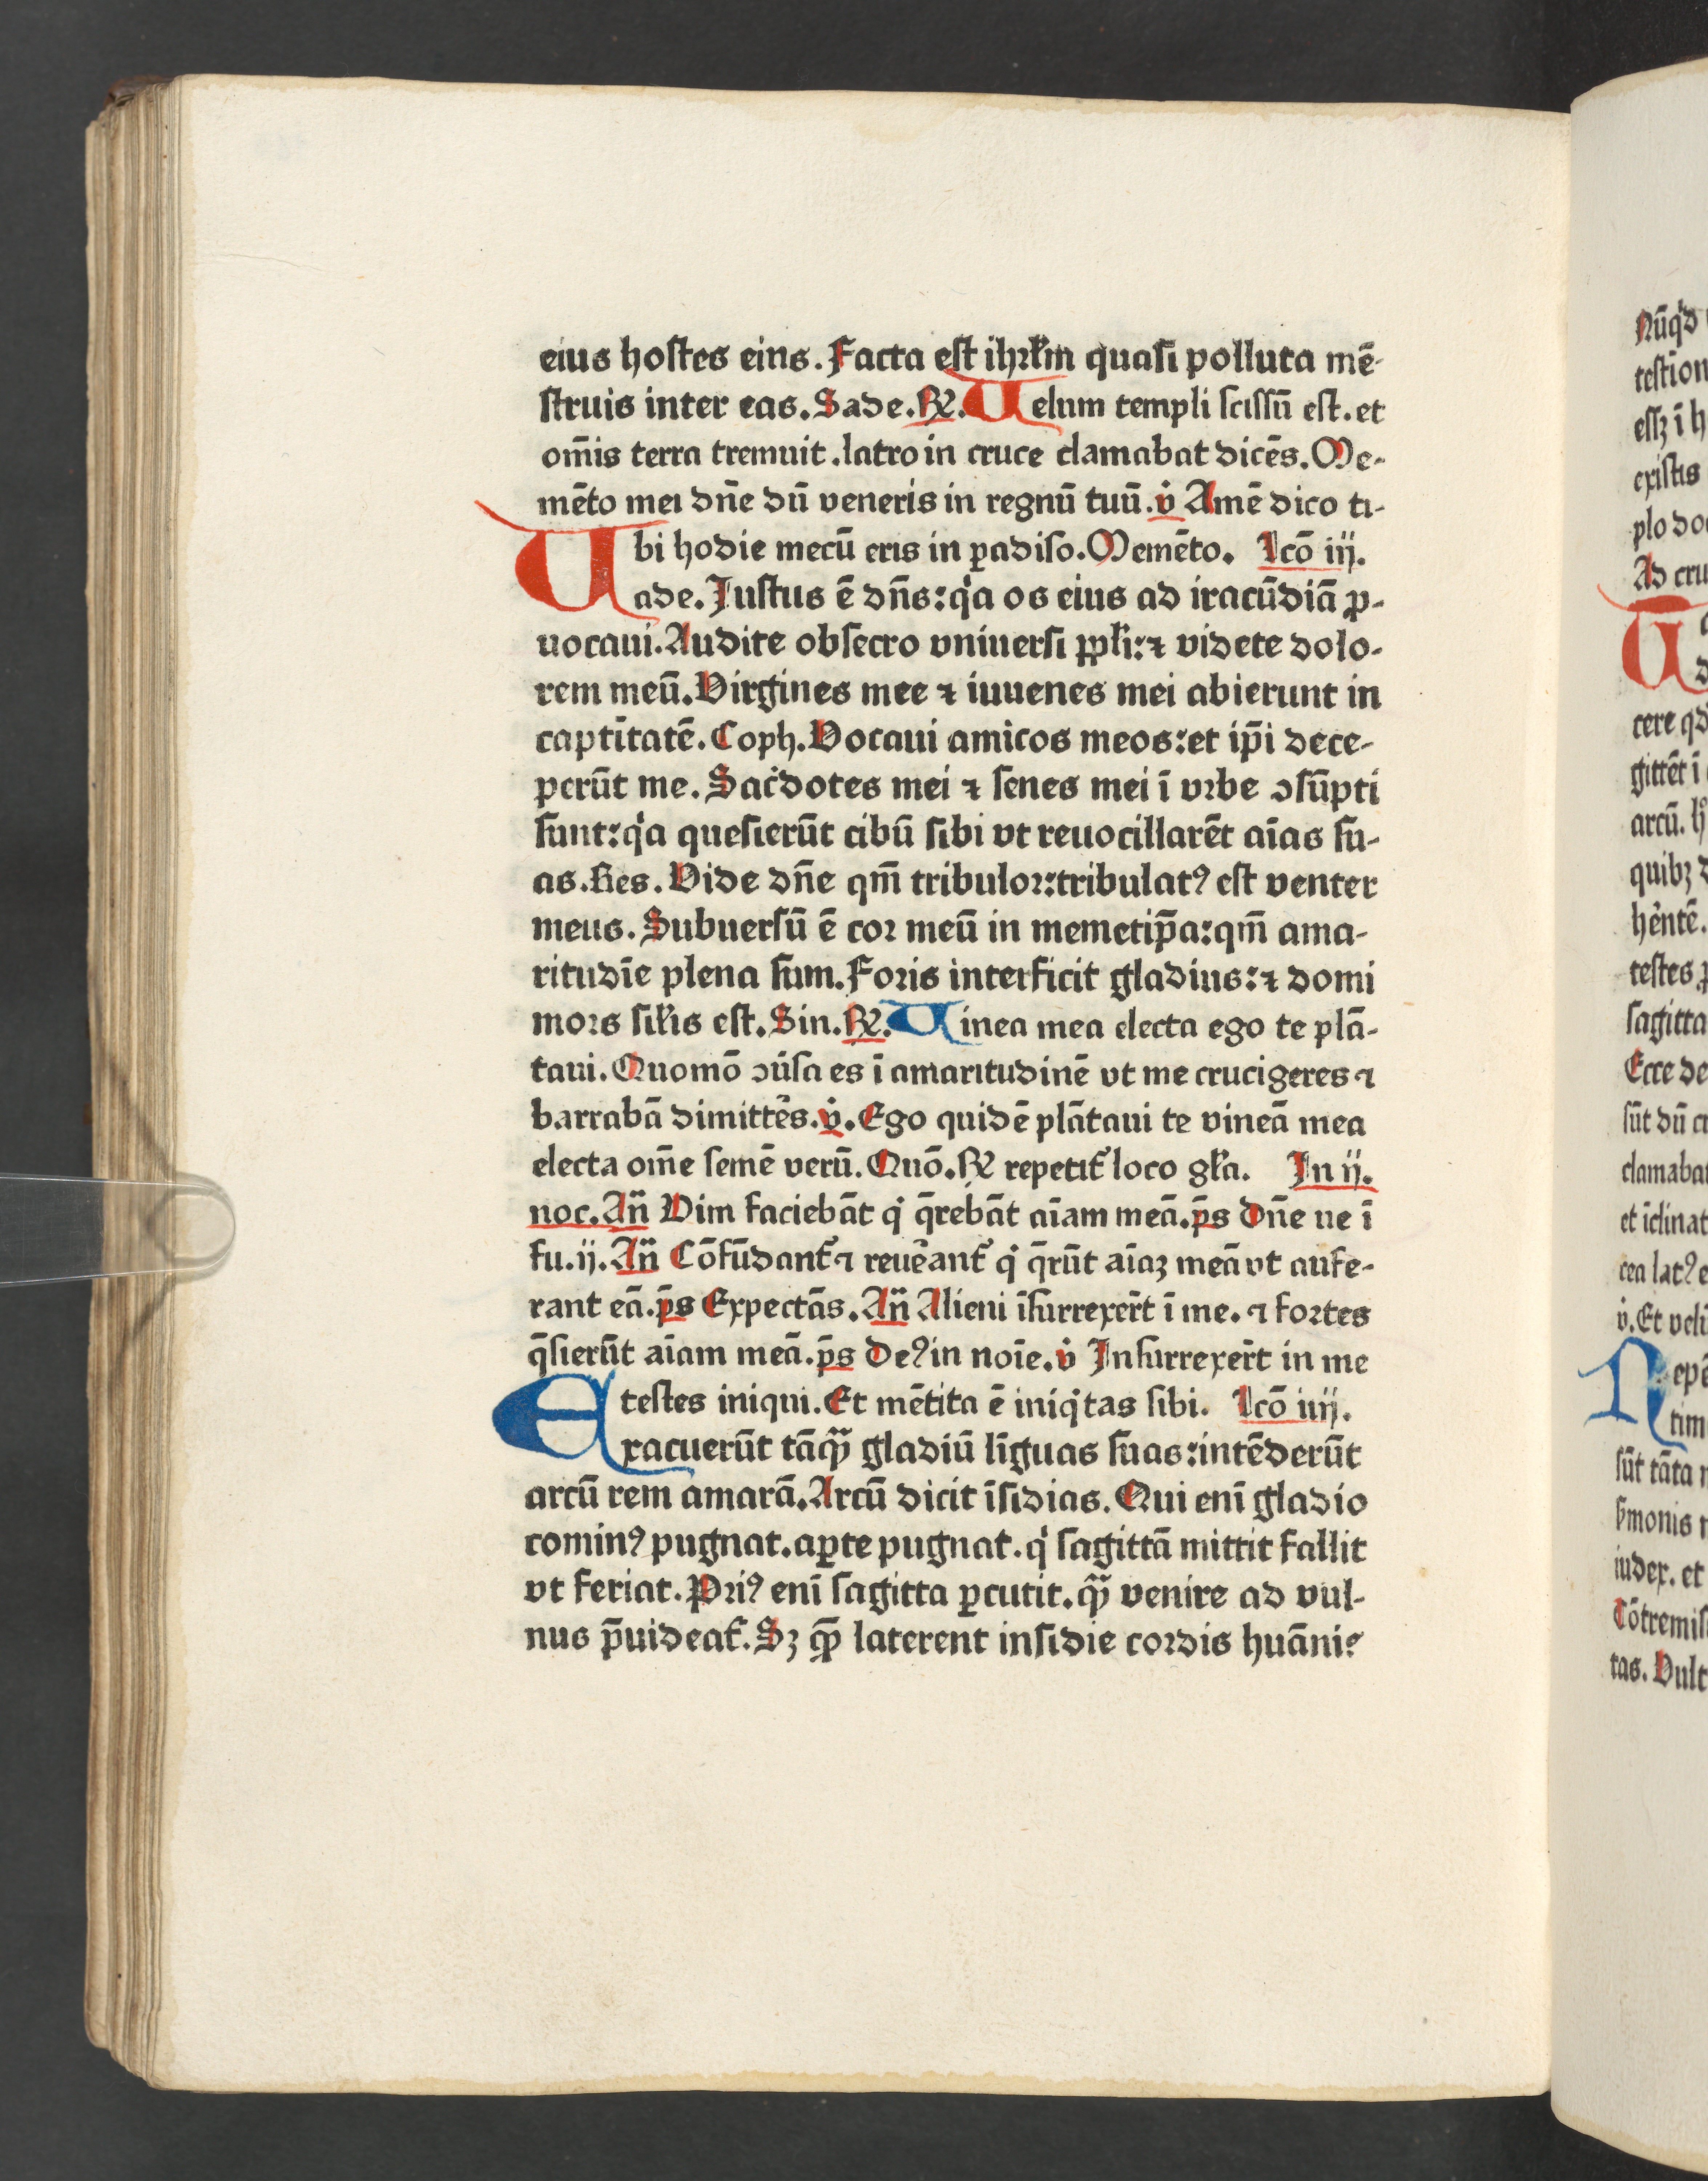 eius hostes eius. Facta est ihrłm quasi polluta mē-
struis inter eas. Sade. ℟. Uelum templi scissū est. et
om̄is terra tremuit. latro in cruce clamabat dicēs. Me-
mēto mei dn̄e dū veneris in regnū tuū. v̇ Amē dico ti-
bi hodie mecū eris in ꝑadiso. Memēto. Lcō iij.
Uade. Iustus ē dn̄s: qͥa os eius ad iracūdiā ꝓ-
uocaui. Audite obsecro vniuersi ppłi: ⁊ videte dolo-
rem meū. Virgines mee ⁊ iuuenes mei abierunt in
captītatē. Coph. Vocaui amicos meos: et ip̄i dece-
perūt me. Sac̄dotes mei ⁊ senes mei ī vrbe ɔsūpti
sunt: qͥa quesierūt cibū sibi vt reuocillarēt aīas su-
as. Res. Vide dn̄e qm̄ tribulor: tribulatꝰ est venter
meus. Subuersū ē cor meū in memetip̄a: qm̄ ama-
ritudīe plena sum. Foris interficit gladius: ⁊ domi
mors siłis est. Sin. ℟. Uinea mea electa ego te plā-
taui. Quomō ɔūsa es ī amaritudinē vt me crucigeres ⁊
barrabā dimittēs. v̇. Ego quidē plātaui te vineā mea
electa om̄e semē verū. Quō. ℟ repetit᷑ loco gła. In ij.
noc. An̄ Vim faciebāt qͥ q̄rebāt aīam meā. p̄s Dn̄e ne ī
fu. ij. An̄ Cōfūdant᷑ ⁊ reuēant᷑ qͥ q̄rūt aīaꝫ meā vt aufe-
rant eā. p̄s Expectās. An̄ Alieni īsurrexer̄t ī me. ⁊ fortes
q̄sierūt aīam meā. p̄s Deꝰ in noīe. v̇ Insurrexer̄t in me
testes iniqui. Et mētita ē iniqͥtas sibi. Lcō iiij.
Exacuerūt tāqꝫ gladiū līguas suas: intēderūt
arcū rem amarā. Arcū dicit īsidias. Qui enī gladio
cominꝰ pugnat. aꝑte pugnat. qͥ sagittā mittit fallit
vt feriat. Priꝰ enī sagitta ꝑcutit. qꝫ venire ad vul-
nus p̄uideat᷑. Sꝫ qꝫ laterent insidie cordis huāniꝰ
Nūqͥd
testīon
essꝫ ī h
existis
plo doc
Ad cru
cere qd
gittēt ī
arcū. h
quibꝫ d
hētē.
testes ꝑ
sagitta
Ecce de
sūt dū cr
clamabat
et īclinat
cea latꝰ e
v̇. Et velū
Nepē
tim
sūt tāta
monis
iudex. et
Cōtremis
tas. Vult